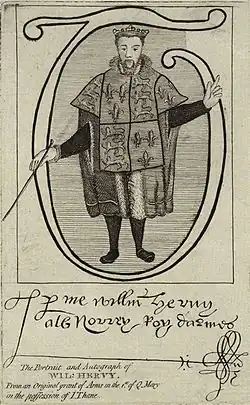 p me Willm Hervy
als Norrey Roy darmes
The Portrait and Autograph of
WIL: HERVY.
From an Original grant of Arms in the 1st of Q. Mary
in the possession of I. Thane.